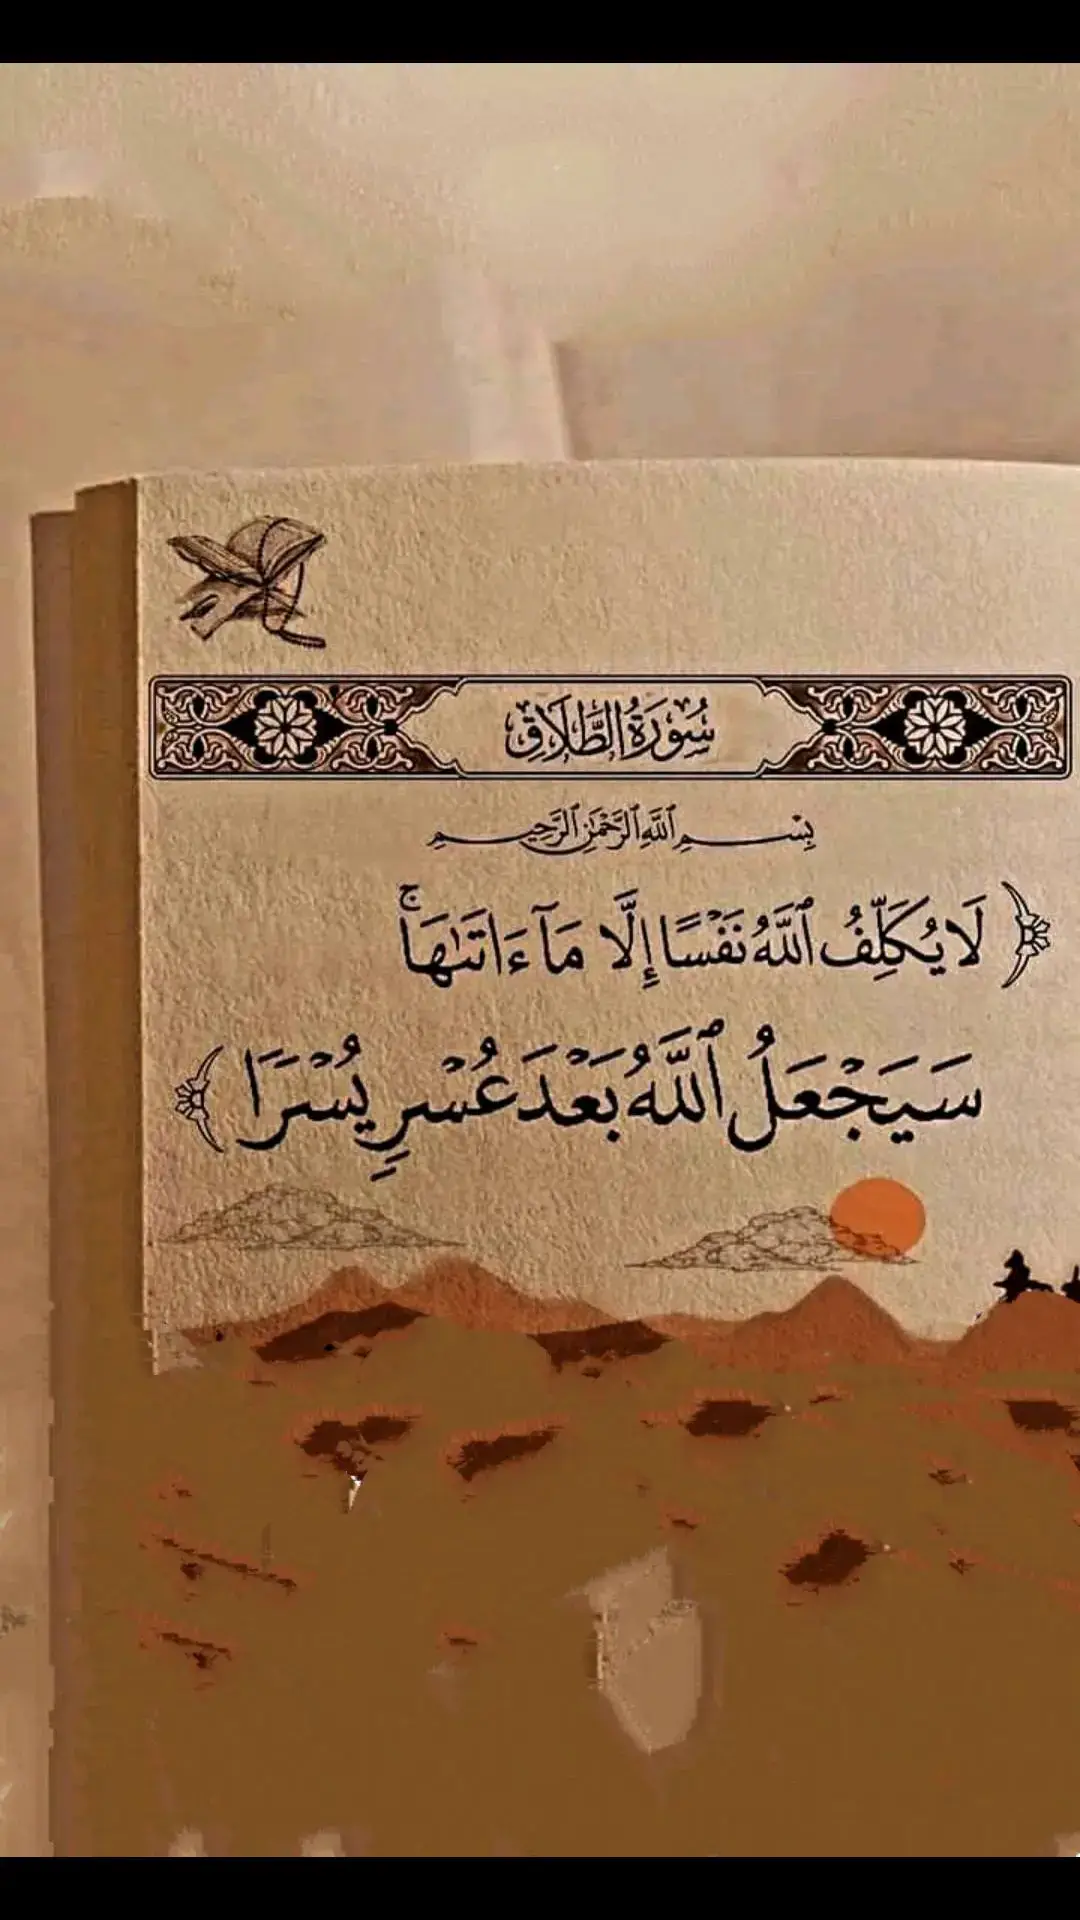 سُورَةُ الطَّلَاقِ
بِسْمِ ٱللَّهِ ٱلرَّحْمَٰنِ ٱلرَّحِيمِ
﴿ لَا يُكَلِّفُ ٱللَّهُ نَفْسًا إِلَّا مَآ ءَاتَىٰهَاۚ
سَيَجْعَلُ ٱللَّهُ بَعْدَ عُسْرٍ يُسْرًا ﴾